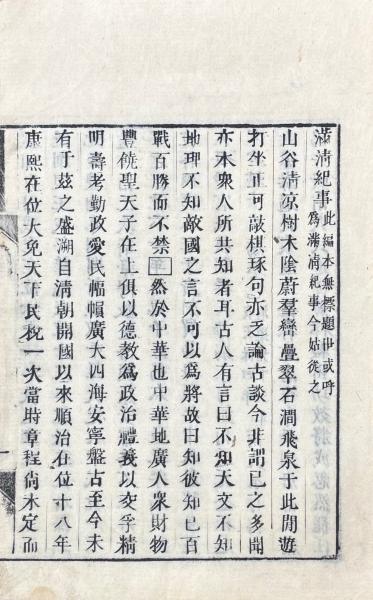 滿清紀事此編本無標題世或呼為滿清紀事今姑從之
山谷清涼樹木陰蔚羣巒疊翠石澗飛泉于此閒遊
打坐正可敲棋琢句亦乏論古談今非謂已之多聞
亦本眾人所共知者耳古人有言曰不知天文不知
地理不知敵國之言不可以為將故曰知彼知已百
戰百勝而不禁□然於中華也中華地廣人衆財物
豐饒聖天子在上俱以德教為政治禮義以交孚精
明壽考勤政愛民幅幀廣大四海安寧盤古至今未
有于茲之盛溯自清朝開國以來順治在位十八年
康熙在位大免天下民稅一次當時章程尙未定而